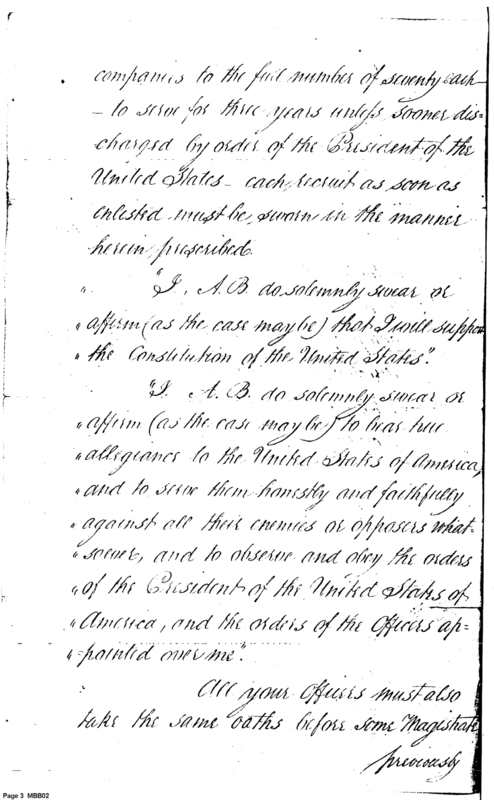 companies to the full number of seventy each
- to serve for three years unless sooner dis=
charged by order of the President of the
United States - each recruit as soon as
enlisted must be, sworn in the manner
herein prescribed.
" "I, A.B. do solemnly swear or
" affirm (as the case may be) that I will suppor
" the Constitution of the United States".
"I. A.B. do solemnly swear or
" affirm (as the case may be) to bear true
" allegiance to the United States of America,
" and to serve them honestly and faithfully
" against all their enemies or opposers what=
" soever, and to observe and obey the orders
" of the President of the United States of
" America, and the orders of the Officers ap=
" =pointed over me".
All your Officers must also
take the same oaths before some Magistrate
previously
Page 3 MBB02